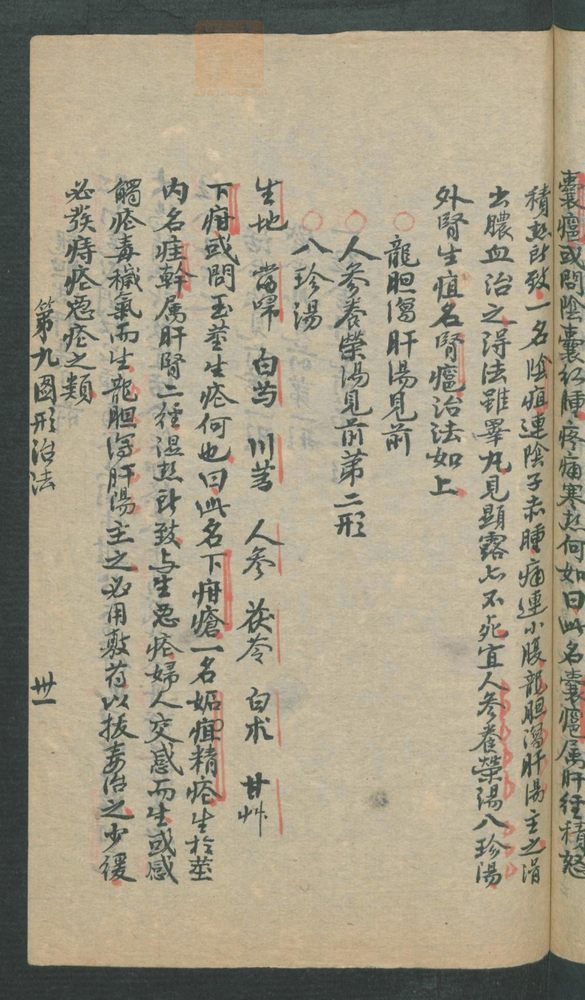 囊癰或問陰囊红腫疼痛寒热何如曰此名囊癰属肝径積怒
積热所致一名陰疽連陰子赤腫痛連小腹龍胆瀉肝湯主之渭
出膿血治之得法雖睾丸見顕露亡不死宜人参養榮湯八珍湯
外腎生疽名腎癰治法如上
龍胆瀉肝湯見前
人参養榮湯見前第二形
八珍湯
生地 當归 白芍 川芎 人参 茯苓 白朮 甘艸
下疳或問玉莖生疮何也曰此名下疳瘡一名妬疽精疮生於莖
内名疰幹属肝腎二径湿热所致与生悪疮婦人交感而生或感
觸疮毒穢氣而生龍胆瀉肝湯主之必用敷药以拔毒治之少缓
必發痔疮悪疮之類
第九圖形治法
卅一